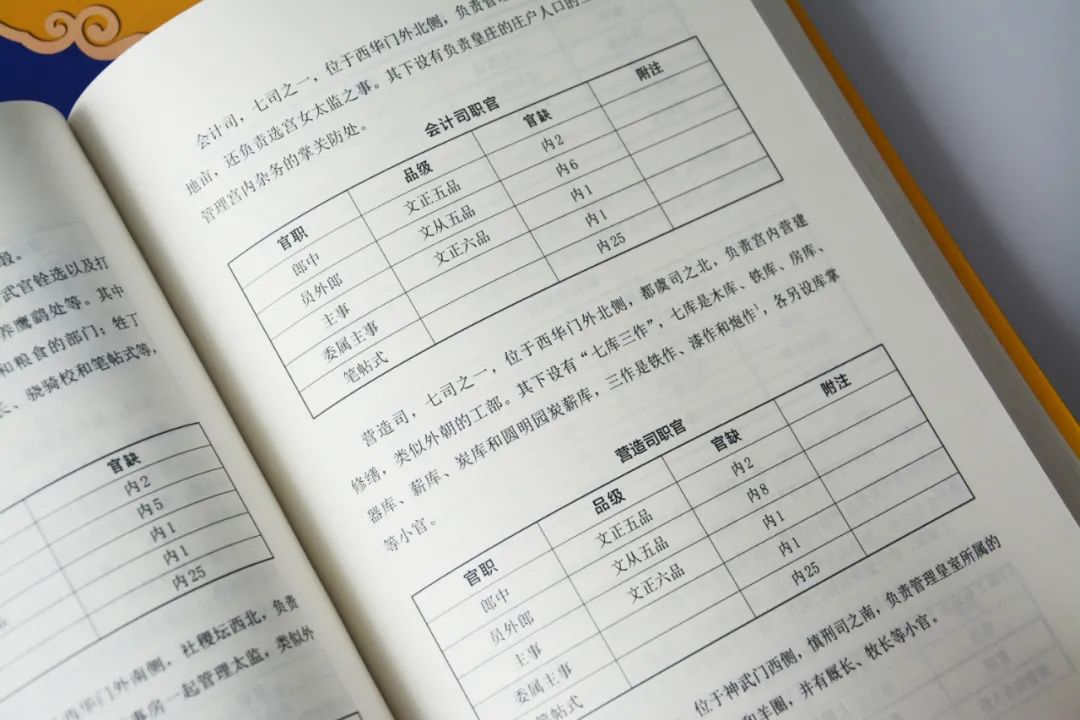 段。
武官铨选以及打
养鹰鹞处等。其中
和粮食的部门；牲丁
长、骁骑校和笔帖式等，
官缺
内2
内5
内1
内1
内25
西华门外南侧，社稷坛西北，负责
事房一起管理太监，类似外
会计司，七司之一，位于西华门外北侧，负责管理
地亩，还负责选宫女太监之事。其下设有负责皇庄的庄户人口的
管理宫内杂务的掌关防处。
会计司职官
官职 品级 官缺 附注
郎中 文正五品 内2
员外郎 文从五品 内6
主事 文正六品 内1
委属主事 内1
笔帖式 内25
营造司，七司之一，位于西华门外北侧，都虞司之北，负责宫内营建
修缮，类似外朝的工部。其下设有“七库三作”，七库是木库、铁库、房库、
器库、薪库、炭库和圆明园炭薪库，三作是铁作、漆作和炮作¹，各另设库掌
等小官。
营造司职官
官职 品级 官缺 附注
郎中 文正五品 内2
员外郎 文从五品 内8
主事 文正六品 内1
委属主事 内1
笔帖式 内25
位于神武门西侧，慎刑司之南，负责管理皇室所属的
和羊圈，并有厩长、牧长等小官。